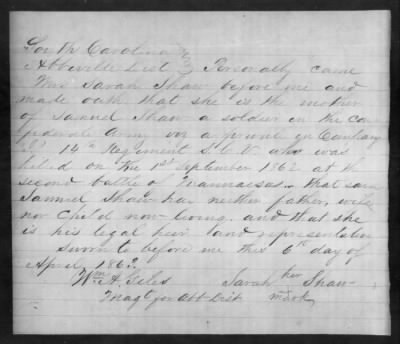 South Carolina }
Abbeville Dist } Personally came
Mrs Sarah Shaw before me and
made oath that she is the mother
of Samuel Shaw a soldier in the Con
federate Army in Company
14th Regiment S. C. V. who was
killed on the 1st September 1862 at the
second battle of Mannassas. that said
Samuel Shaw has neither father, wife
nor child now living. and that she
is his legal heir and representative
Sworn to before me this 6th day of
April 1863.
Wm A. Giles Sarah her Shaw
Magt for Abb Dist mark